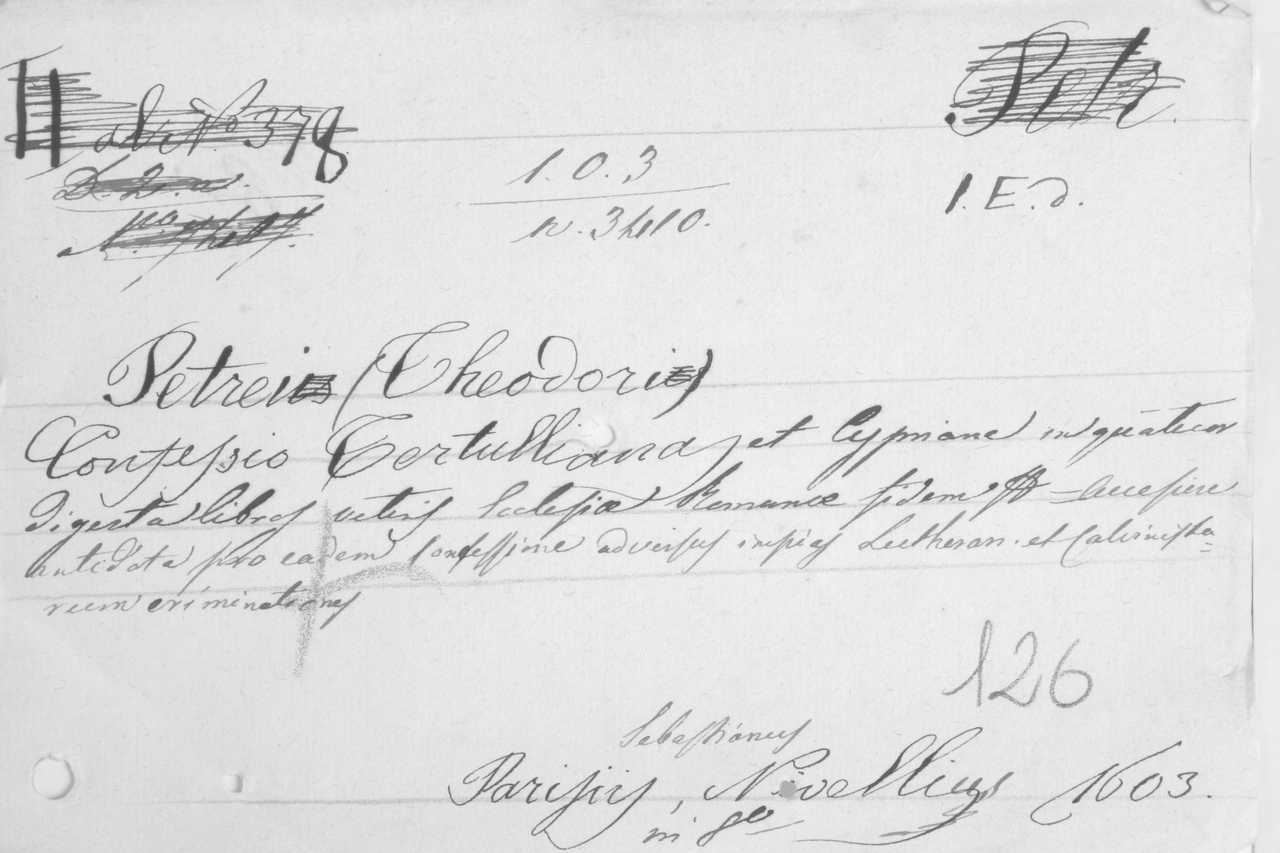 Petz.
N° 378
1.0.3
n. 3410.
1. E. d.
Petrei (Theodori)
Confessio Tertulliana et Cypriana in quatuor
digesta libros veteris Ecclesiæ Romanæ fidem = Accessere
antidota pro eadem Confessione adversus impias Lutheran. et Calvinista=
rum criminationes
126
Sebastianus
Parisiis, Nivellius 1603.
in 8°